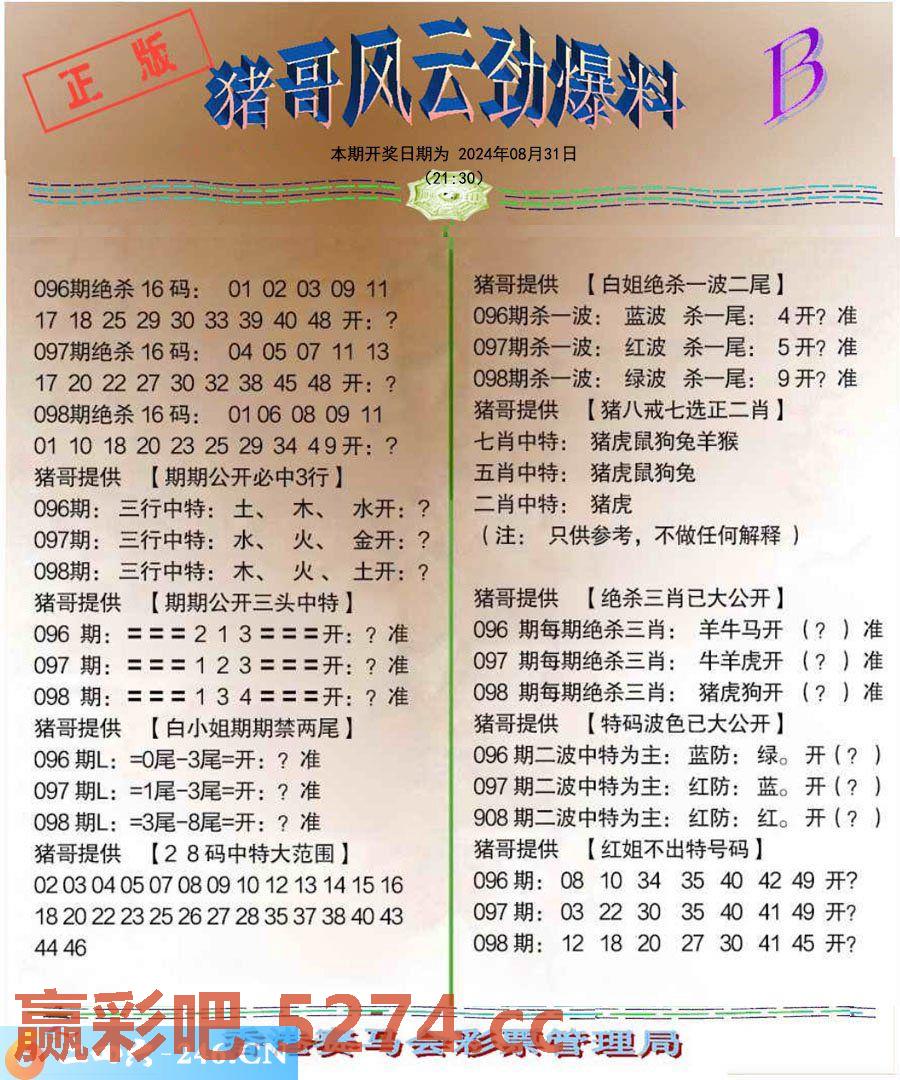 正版
猪哥风云劲爆料
B
本期开奖日期为 2024年08月31日
(21:30)
096期绝杀16码： 01 02 03 09 11
17 18 25 29 30 33 39 40 48 开：？
097期绝杀16码： 04 05 07 11 13
17 20 22 27 30 32 38 45 48 开：？
098期绝杀16码： 01 06 08 09 11
01 10 18 20 23 25 29 34 49 开：？
猪哥提供 【期期公开必中3行】
096期： 三行中特： 土、 木、 水开：？
097期： 三行中特： 水、 火、 金开：？
098期： 三行中特： 木、 火、 土开：？
猪哥提供 【期期公开三头中特】
096 期：〓〓〓２１３〓〓〓开：？准
097 期：〓〓〓１２３〓〓〓开：？准
098 期：〓〓〓１３４〓〓〓开：？准
猪哥提供 【白小姐期期禁两尾】
096期L：=0尾-3尾=开：？准
097期L：=1尾-3尾=开：？准
098期L：=3尾-8尾=开：？准
猪哥提供 【２８码中特大范围】
02 03 04 05 07 08 09 10 12 13 14 15 16
18 20 22 23 25 26 27 28 35 37 38 40 43
44 46
猪哥提供 【白姐绝杀一波二尾】
096期杀一波： 蓝波 杀一尾： 4开？准
097期杀一波： 红波 杀一尾： 5开？准
098期杀一波： 绿波 杀一尾： 9开？准
猪哥提供 【猪八戒七选正二肖】
七肖中特： 猪虎鼠狗兔羊猴
五肖中特： 猪虎鼠狗兔
二肖中特： 猪虎
（注： 只供参考，不做任何解释 ）
猪哥提供 【绝杀三肖已大公开】
096 期每期绝杀三肖： 羊牛马开 （？）准
097 期每期绝杀三肖： 牛羊虎开 （？）准
098 期每期绝杀三肖： 猪虎狗开 （？）准
猪哥提供 【特码波色已大公开】
096期二波中特为主： 蓝防： 绿。 开（？）
097期二波中特为主： 红防： 蓝。 开（？）
908期二波中特为主： 红防： 红。 开（？）
猪哥提供 【红姐不出特号码】
096期： 08 10 34 35 40 42 49 开?
097期： 03 22 30 35 40 41 49 开?
098期： 12 18 20 27 30 41 45 开?
赢彩吧 5274.cc
马会彩票管理局